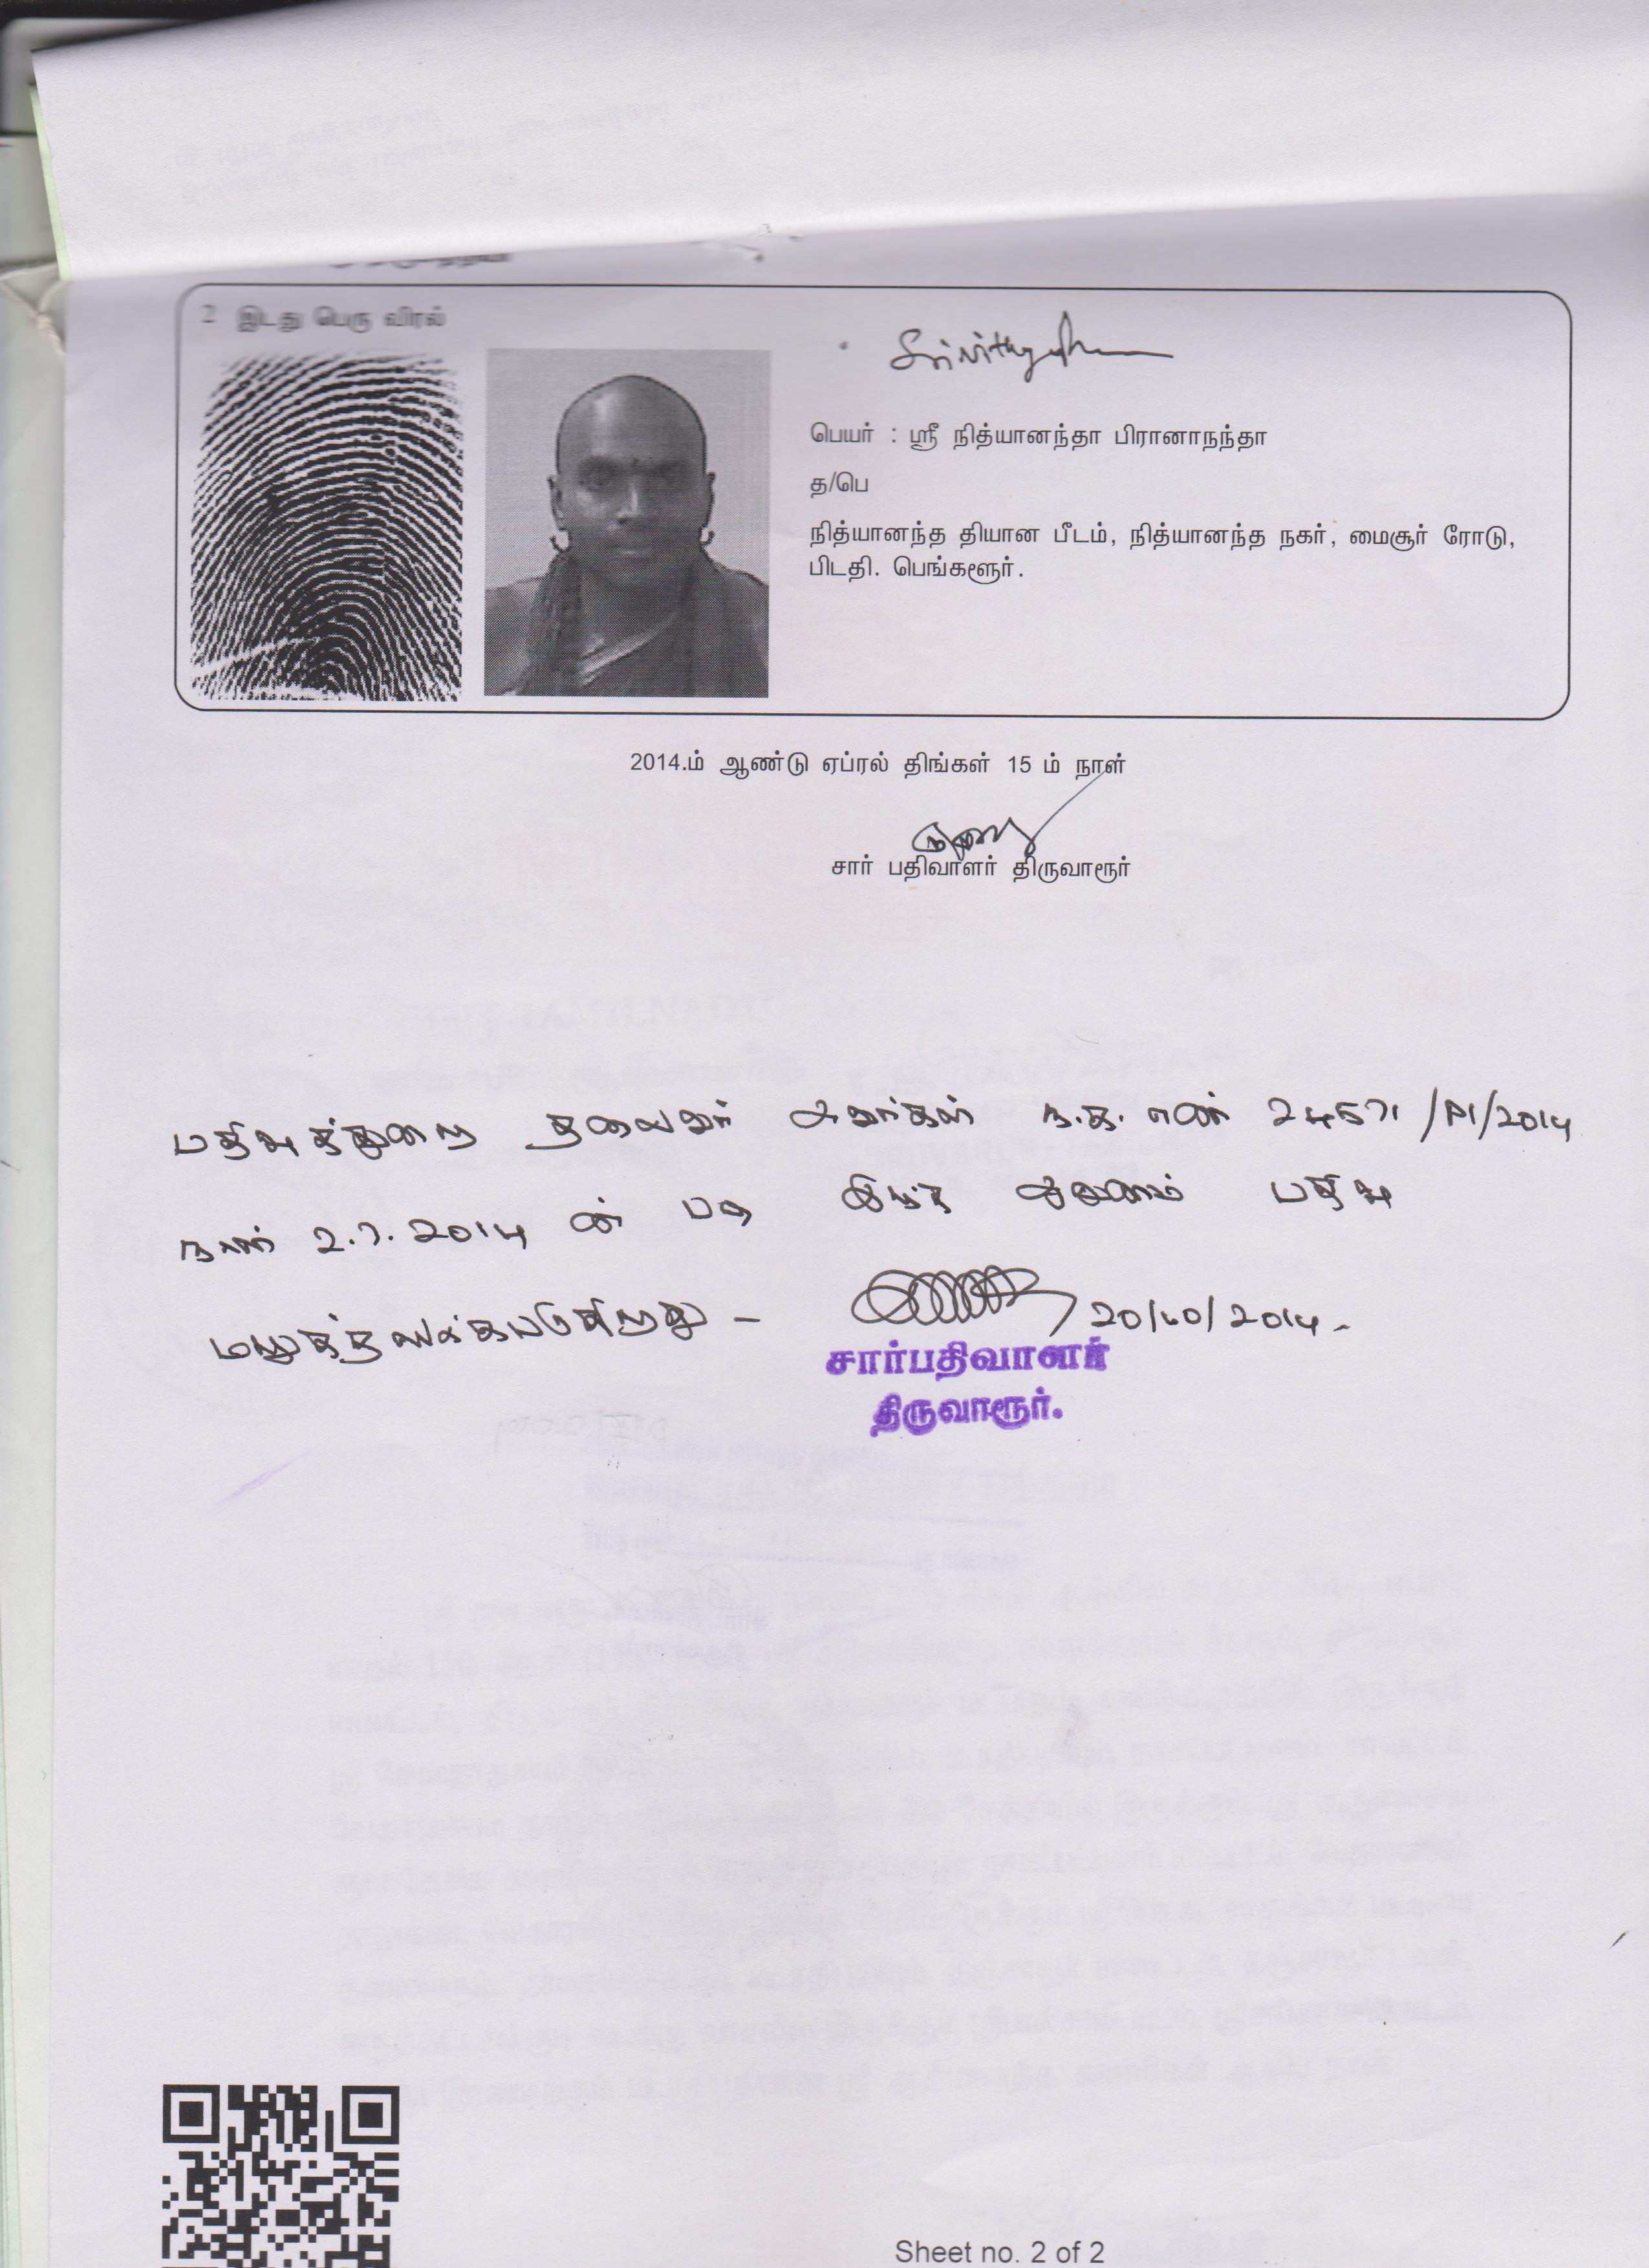 2 இடது பெரு விரல்
பெயர் : ஸ்ரீ நித்யானந்தா பிரானாநந்தா
த/பெ
நித்யானந்த தியான பீடம், நித்யானந்த நகர், மைசூர் ரோடு,
பிடதி. பெங்களூர்.
2014.ம் ஆண்டு ஏப்ரல் திங்கள் 15 ம் நாள்
சார் பதிவாளர் திருவாரூர்
பதிவுத்துறை தலைவர் அவர்கள் ந.க. எண் 24571/P1/2014
நாள் 2.7.2014 ன் படி இந்த ஆவணம் பதிவு
மறுத்தளிக்கப்படுகிறது -
20/10/2014.
சார்பதிவாளர்
திருவாரூர்.
Sheet no. 2 of 2